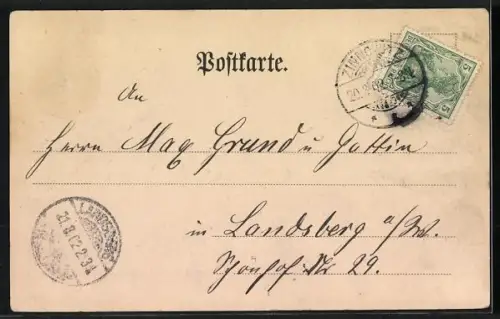 Postkarte.
An
Herrn Max Grund u Gattin
in Landsberg a/W.
Schönhof Nr 29.
5
5